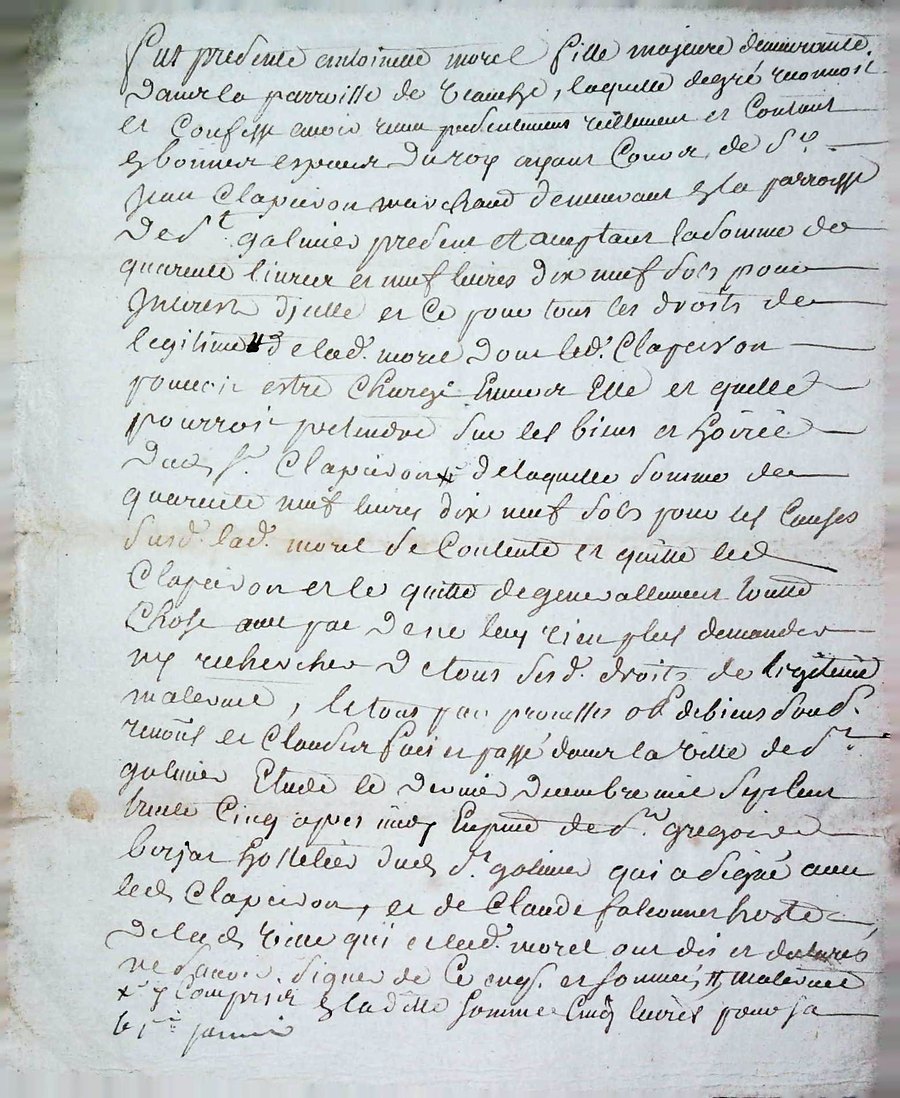 Fut presente antoinette morel fille majeure demeurante
dans la parroisse de laquelle degré reconnoit
et Confesse avoir receu presentement reellement et Contant
en bonnes especes du roy ayant Cours, de Sr.
Jean Clapeiron marchand demeurant en la parroisse
de St. galmier present et acceptant la somme de
quarente livres et neuf livres dix neuf sols pour
Interest d'icelle et Ce pour tous les droits de
legitime # de lad. morel dont led. Clapeiron
pouvoit estre Chargé Envers Elle et quelle
pourroit pretendre sur les biens et hoirie
dud. Sr. Clapeiron x de laquelle somme de
quarente neuf livres dix neuf sols pour les Causes
susd. lad. morel se Contente et quitte led.
Clapeiron et le quitte de generallement toutte
Chose avec pac de ne luy rien plus demander
ny rechercher de tous sesd. droits de legitime
maternel, le tous par promesses ob. de biens soud.
renons. et Clauses fait et passé dans la ville de St.
galmier Etude le dernier decembre mil sept cent
trente Cinq apres midy En pnce de Sr. gregoire
hottelier dud. St. galmier qui a signé avec
led. Clapeiron, et de Claude falconnet hoste
de lad. ville qui et lad. morel ont dit et declaré
ne scavoir signer de Ce enqs. et sommés # maternel
x y Compris en la ditte somme Cinq livres pour sa
janvier